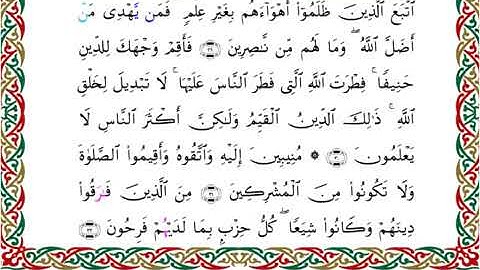 ٱتَّبَعَ ٱلَّذِينَ ظَلَمُوٓا۟ أَهْوَآءَهُم بِغَيْرِ عِلْمٍ ۖ فَمَن يَهْدِى مَنْ
أَضَلَّ ٱللَّهُ ۖ وَمَا لَهُم مِّن نَّـٰصِرِينَ ٢٩ فَأَقِمْ وَجْهَكَ لِلدِّينِ
حَنِيفًا ۚ فِطْرَتَ ٱللَّهِ ٱلَّتِى فَطَرَ ٱلنَّاسَ عَلَيْهَا ۚ لَا تَبْدِيلَ لِخَلْقِ
ٱللَّهِ ۚ ذَٰلِكَ ٱلدِّينُ ٱلْقَيِّمُ وَلَـٰكِنَّ أَكْثَرَ ٱلنَّاسِ لَا
يَعْلَمُونَ ٣٠ ۞ مُنِيبِينَ إِلَيْهِ وَٱتَّقُوهُ وَأَقِيمُوا۟ ٱلصَّلَوٰةَ
وَلَا تَكُونُوا۟ مِنَ ٱلْمُشْرِكِينَ ٣١ مِنَ ٱلَّذِينَ فَرَّقُوا۟
دِينَهُمْ وَكَانُوا۟ شِيَعًا ۖ كُلُّ حِزْبٍۭ بِمَا لَدَيْهُمْ فَرِحُونَ ٣٢